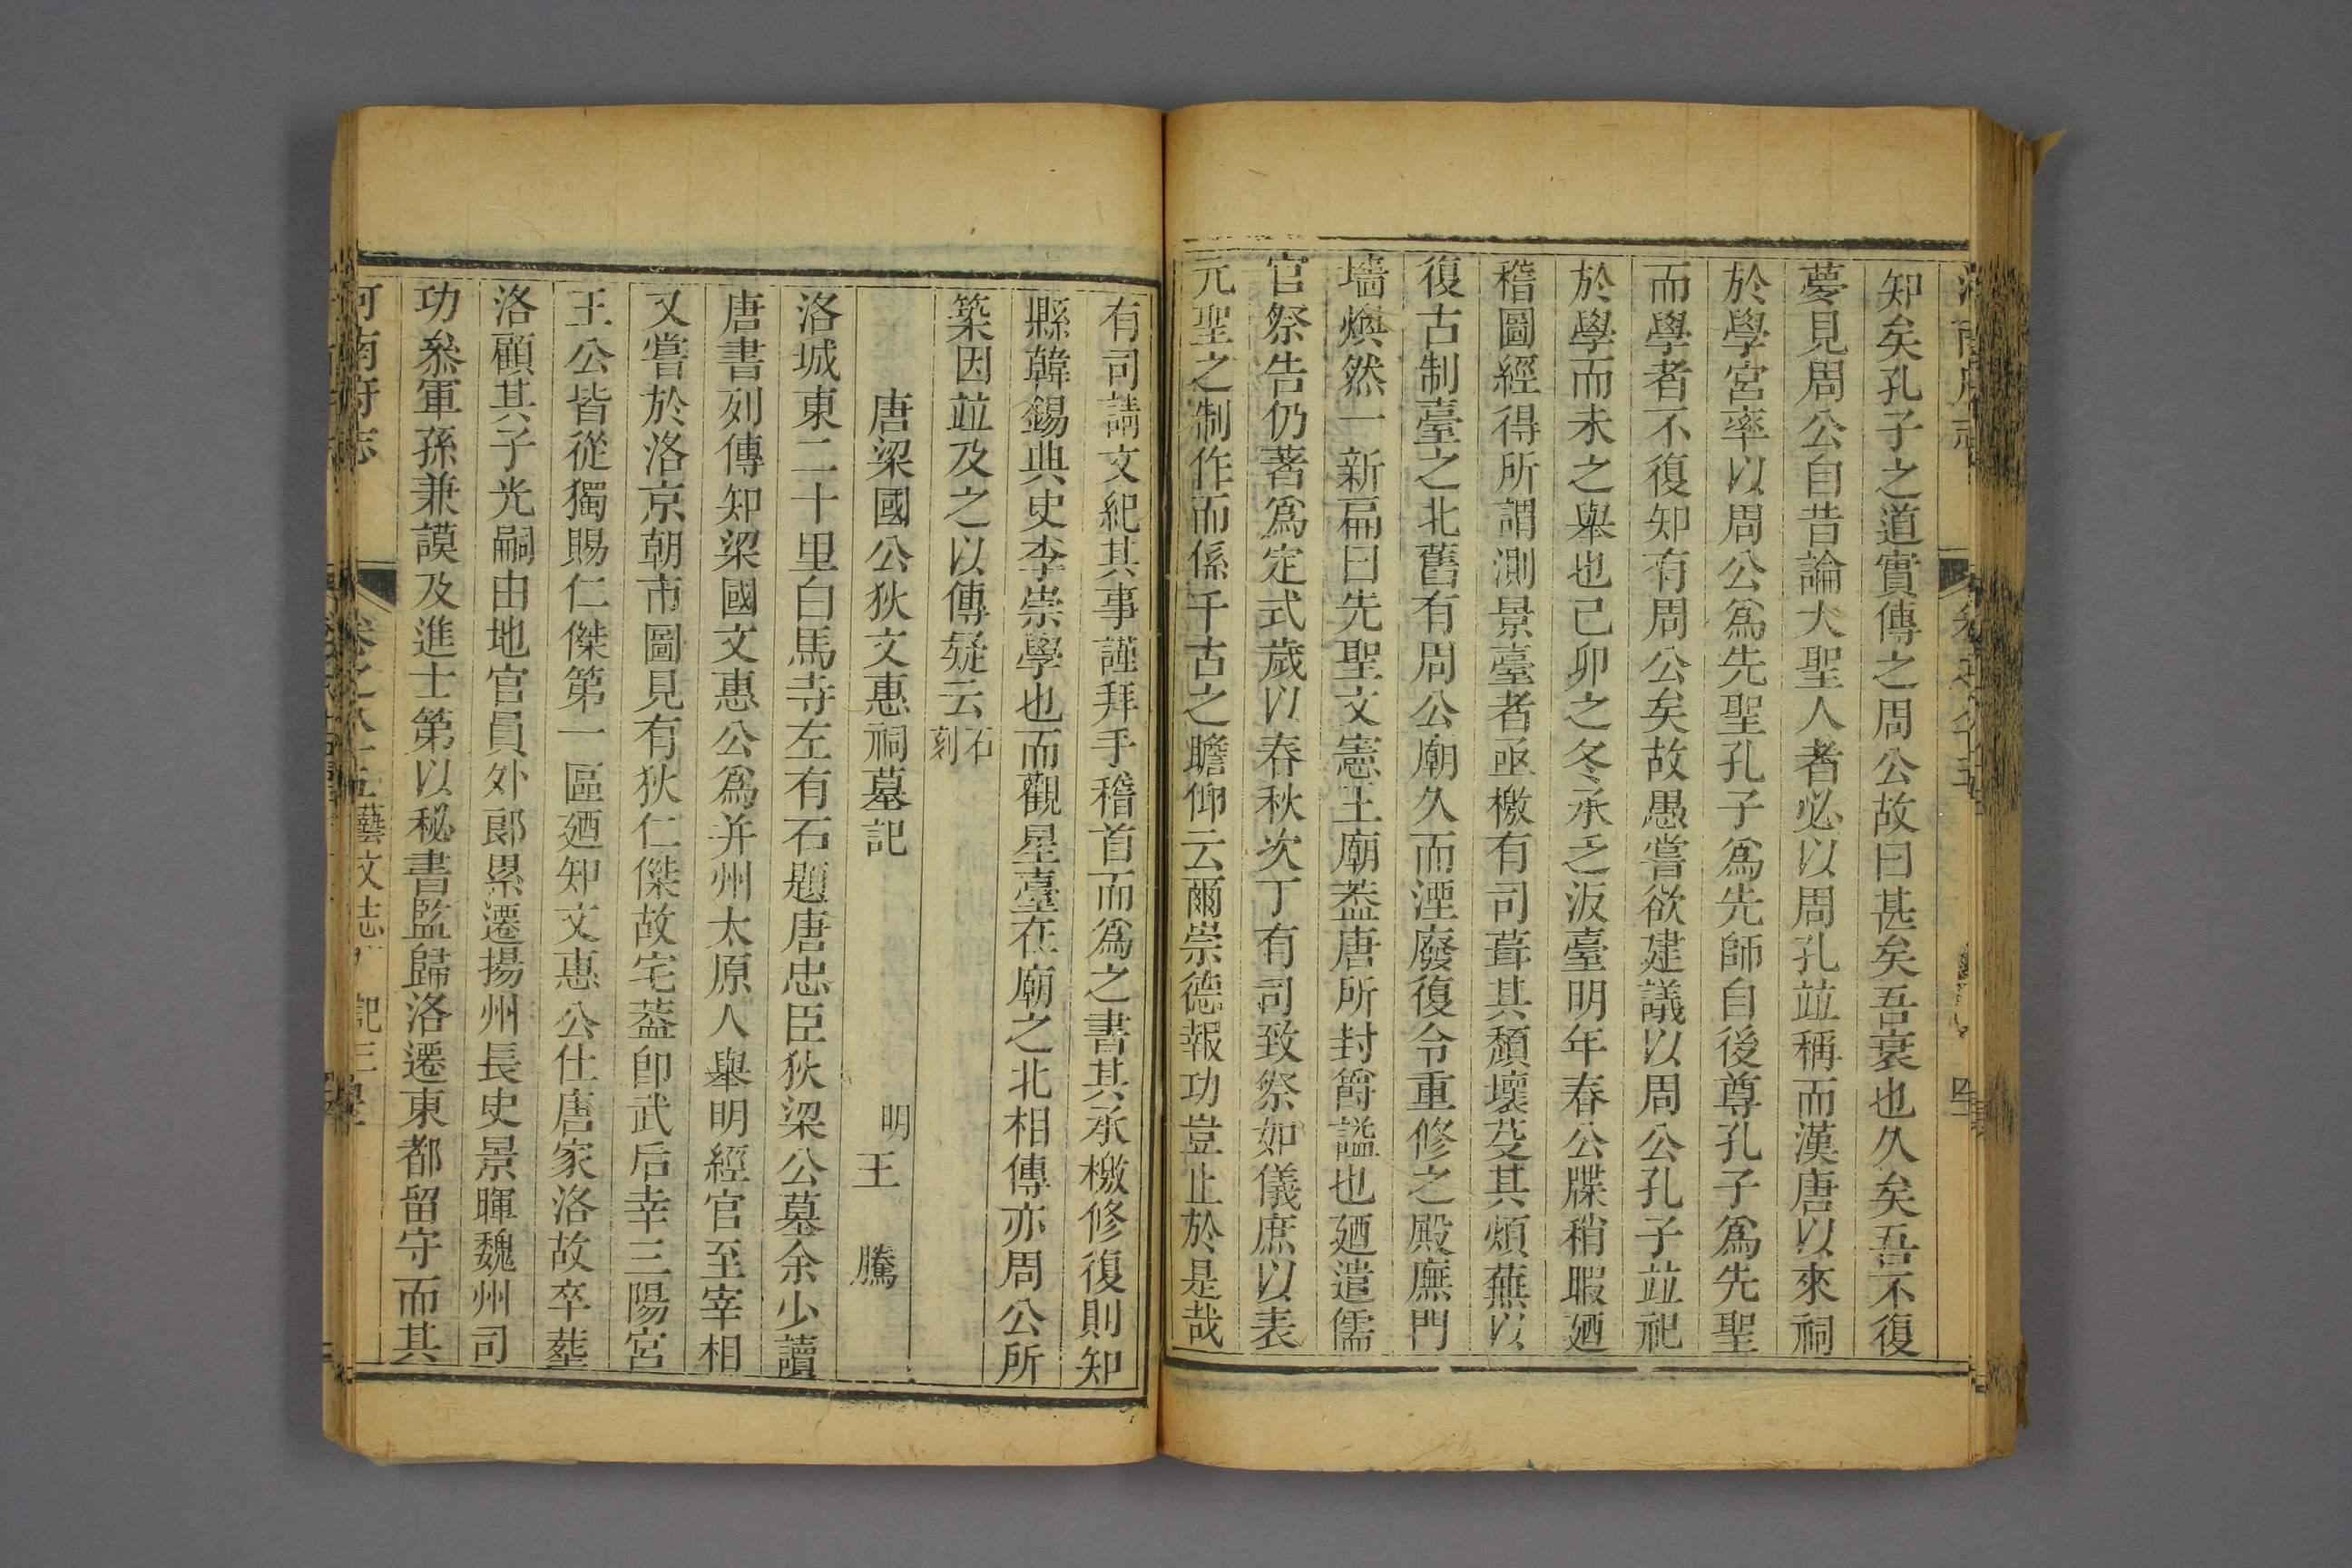 知矣孔子之道實傳之周公故曰甚矣吾衰也久矣吾不復
夢見周公自昔論大聖人者必以周孔並稱而漢唐以來祠
於學宮率以周公爲先聖孔子爲先師自後尊孔子爲先聖
而學者不復知有周公矣故愚嘗欲建議以周公孔子並祀
於學而未之舉也己卯之冬承乏汳臺明年春公牒稍暇廼
稽圖經得所謂測景臺者亟檄有司葺其頽壞芟其煩蕪以
復古制臺之北舊有周公廟久而湮廢復令重修之殿廡門
墻煥然一新扁曰先聖文憲王廟葢唐所封爵謚也廼遣儒
官祭告仍著爲定式歲以春秋次丁有司致祭如儀庶以表
元聖之制作而係千古之瞻仰云爾崇德報功豈止於是哉
有司請文紀其事謹拜手稽首而爲之書其承檄修復則知
縣韓錫典史李崇學也而觀星臺在廟之北相傳亦周公所
築因並及之以傳疑云石刻
唐梁國公狄文惠祠墓記
明王騰
洛城東二十里白馬寺左有石題唐忠臣狄梁公墓余少讀
唐書列傳知梁國文惠公爲并州太原人舉明經官至宰相
又嘗於洛京朝市圖見有狄仁傑故宅葢卽武后幸三陽宮
王公皆從獨賜仁傑第一區廼知文惠公仕唐家洛故卒塟
洛顧其子光嗣由地官員外郎累遷揚州長史景暉魏州司
功叅軍孫兼謨及進士第以秘書監歸洛遷東都留守而其
河南府志
卷之八十五
藝文志
記三